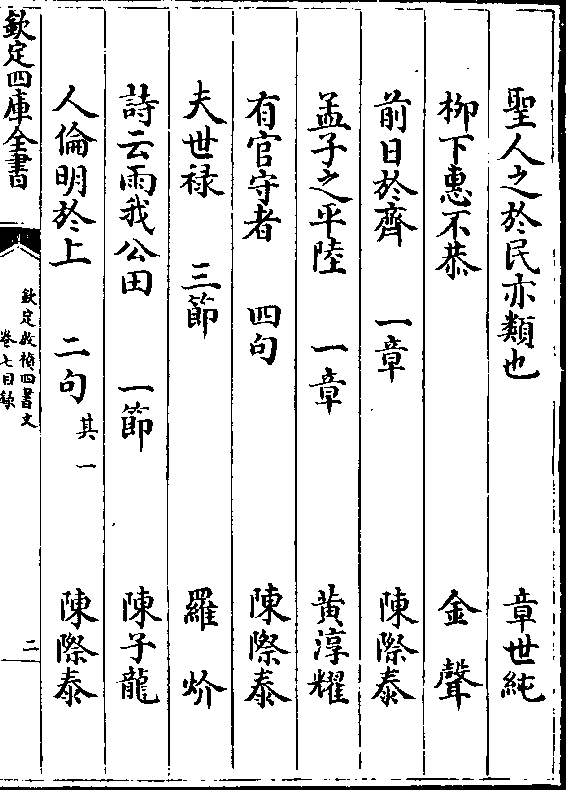 聖人之於民亦類也 章世純
柳下惠不恭 金聲
前日於齊 一章 陳際泰
孟子之平陸 一章 黃淳耀
有官守者 四句 陳際泰
夫世禄 三節 羅炌
詩云雨我公田 一節 陳子龍
人倫明於上 二句 其一 陳際泰
欽定四庫全書
欽定啟禎四書文
卷七目錄
二